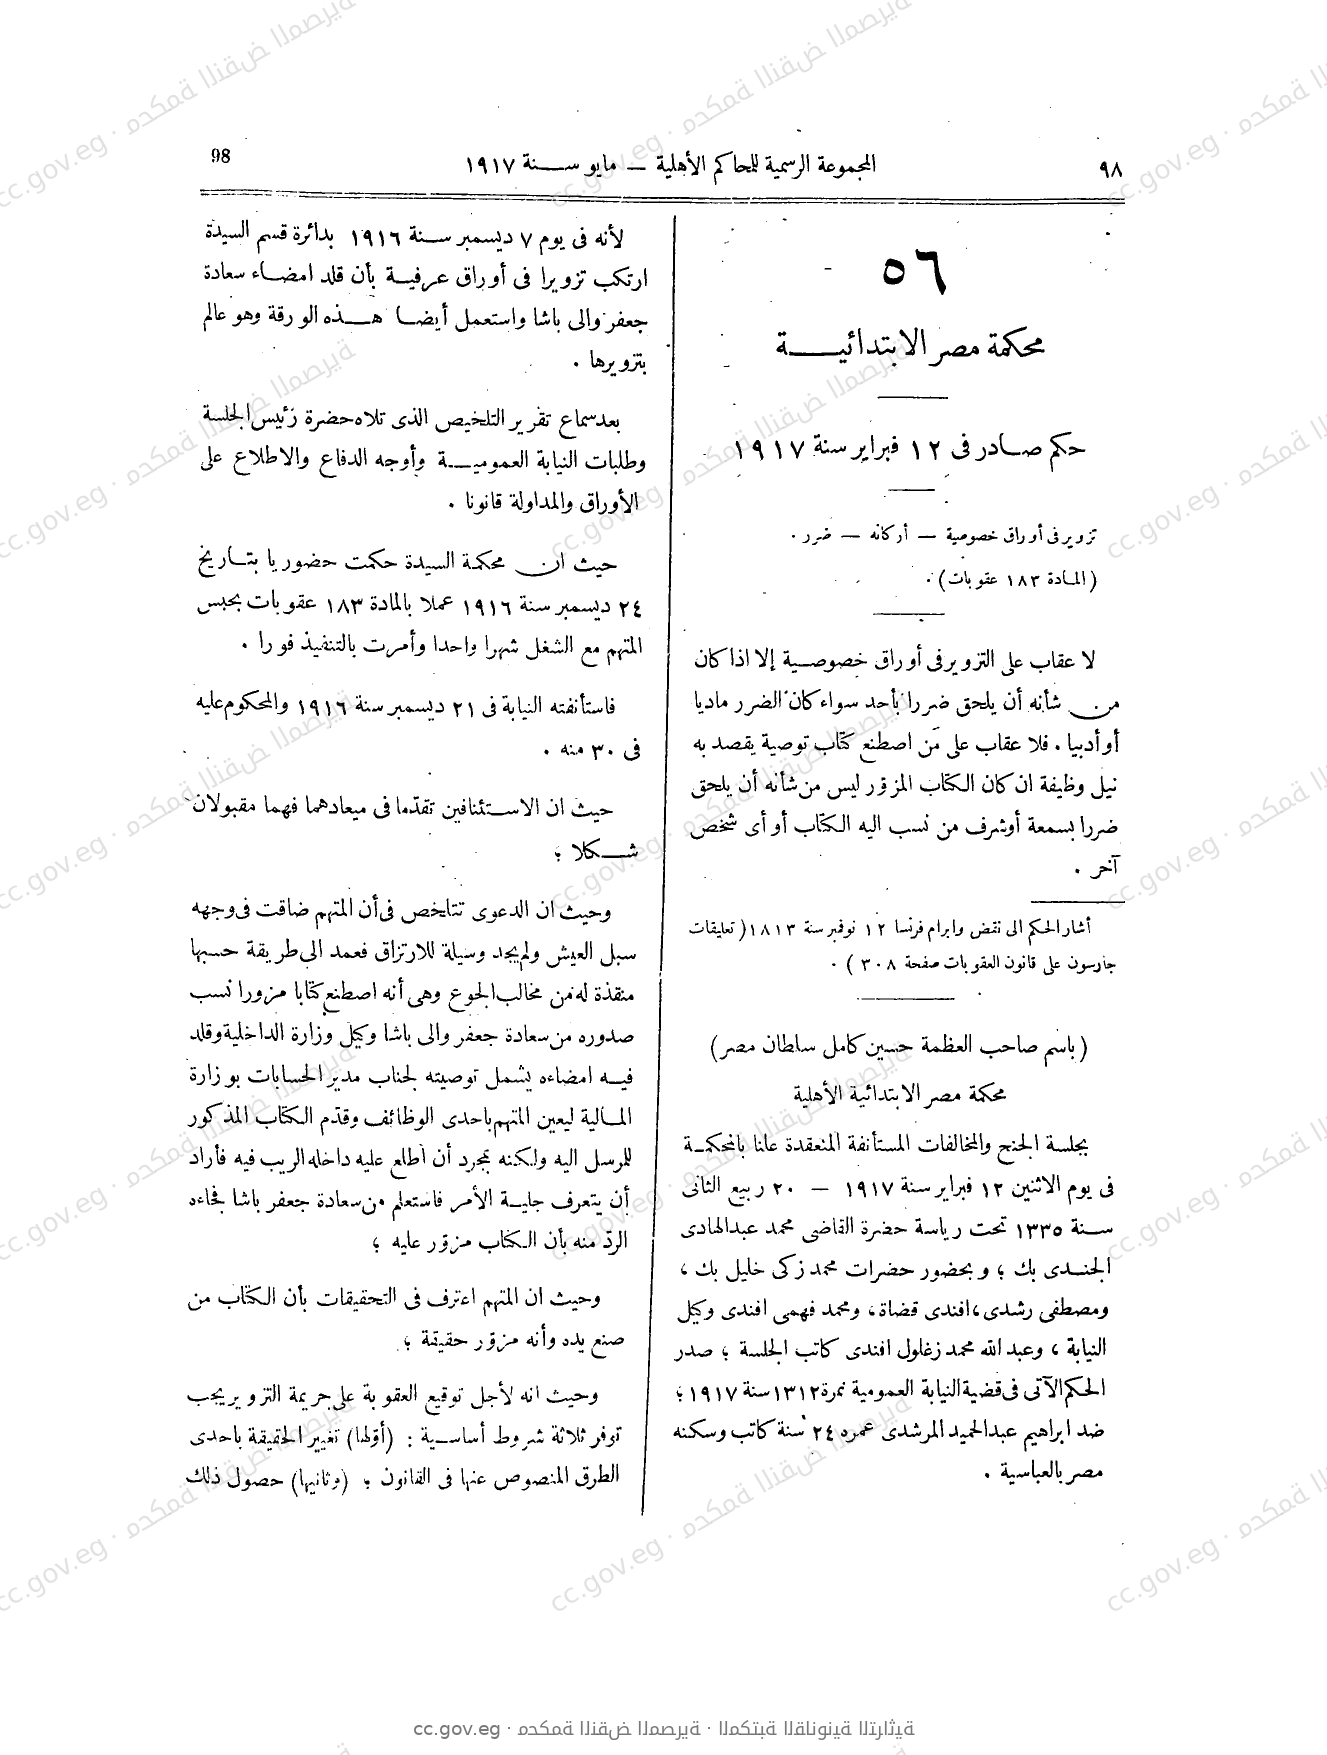 ٩٨
المجموعة الرسمية للمحاكم الأهلية — مايو سنة ١٩١٧
98
٥٦
محكمة مصر الابتدائية
حكم صادر فى ١٢ فبراير سنة ١٩١٧
تزوير فى أوراق خصوصية — أركانه — ضرر .
(المادة ١٨٣ عقوبات) .
لا عقاب على التزوير فى أوراق خصوصية إلا اذا كان
من شأنه أن يلحق ضررا بأحد سواء كان الضرر ماديا
أو أدبيا . فلا عقاب على مَن اصطنع كتاب توصية يقصد به
نيل وظيفة ان كان الكتاب المزوّر ليس من شأنه أن يلحق
ضررا بسمعة أو شرف من نسب اليه الكتاب أو أى شخص
آخر .
أشار الحكم الى نقض وابرام فرنسا ١٢ نوفمبر سنة ١٨١٣ (تعليقات
جارسون على قانون العقوبات صفحة ٣٠٨) .
(باسم صاحب العظمة حسين كامل سلطان مصر)
محكمة مصر الابتدائية الأهلية
بجلسة الجنح والمخالفات المستأنفة المنعقدة علنا بالمحكمة
فى يوم الاثنين ١٢ فبراير سنة ١٩١٧ — ٢٠ ربيع الثانى
سنة ١٣٣٥ تحت رياسة حضرة القاضى محمد عبدالهادى
الجندى بك ؛ وبحضور حضرات محمد زكى خليل بك ،
ومصطفى رشدى ، افندى قضاة ، ومحمد فهمى افندى وكيل
النيابة ، وعبد الله محمد زغلول افندى كاتب الجلسة ؛ صدر
الحكم الآتى فى قضية النيابة العمومية نمرة ١٣١٢ سنة ١٩١٧ ؛
ضد ابراهيم عبدالحميد المرشدى عمره ٢٤ سنة كاتب وسكنه
مصر بالعباسية .
لأنه فى يوم ٧ ديسمبر سنة ١٩١٦ بدائرة قسم السيدة
ارتكب تزويرا فى أوراق عرفية بأن قلد امضاء سعادة
جعفر والى باشا واستعمل أيضا هذه الورقة وهو عالم
بتزويرها .
بعد سماع تقرير التلخيص الذى تلاه حضرة رئيس الجلسة
وطلبات النيابة العمومية وأوجه الدفاع والاطلاع على
الأوراق والمداولة قانونا .
حيث ان محكمة السيدة حكمت حضوريا بتاريخ
٢٤ ديسمبر سنة ١٩١٦ عملا بالمادة ١٨٣ عقوبات بحبس
المتهم مع الشغل شهرا واحدا وأمرت بالتنفيذ فورا .
فاستأنفته النيابة فى ٢١ ديسمبر سنة ١٩١٦ والمحكوم عليه
فى ٣٠ منه .
حيث ان الاستئنافين تقدّما فى ميعادهما فهما مقبولان
شكلا ؛
وحيث ان الدعوى تتلخص فى أن المتهم ضاقت فى وجهه
سبل العيش ولم يجد وسيلة للارتزاق فعمد الى طريقة حسبها
منقذة له من مخالب الجوع وهى أنه اصطنع كتابا مزورا نسب
صدوره من سعادة جعفر والى باشا وكيل وزارة الداخلية وقلد
فيه امضاءه يشمل توصيته لجناب مدير الحسابات بوزارة
المالية ليعين المتهم باحدى الوظائف وقدّم الكتاب المذكور
للمرسل اليه ولكنه بمجرد أن أطلع عليه داخله الريب فيه فأراد
أن يتعرف جلية الأمر فاستعلم من سعادة جعفر باشا فجاءه
الردّ منه بأن الكتاب مزوّر عليه ؛
وحيث ان المتهم اعترف فى التحقيقات بأن الكتاب من
صنع يده وأنه مزوّر حقيقة ؛
وحيث انه لأجل توقيع العقوبة على جريمة التزوير يجب
توفر ثلاثة شروط أساسية : (أوّلها) تغيير الحقيقة باحدى
الطرق المنصوص عنها فى القانون ؛ (وثانيها) حصول ذلك
cc.gov.eg · محكمة النقض المصرية · المكتبة القانونية التراثية